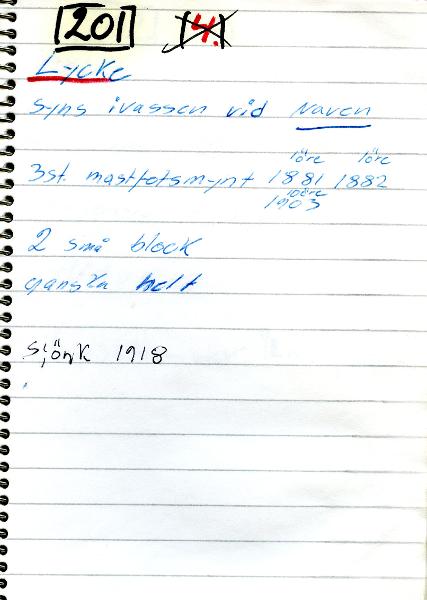 201 4.
Lycke
Syns i vassen vid Naven
1öre 1öre
3st. mastfotsmynt 1881 1882
10öre
1903
2 små block
ganska helt
Sjönk 1918